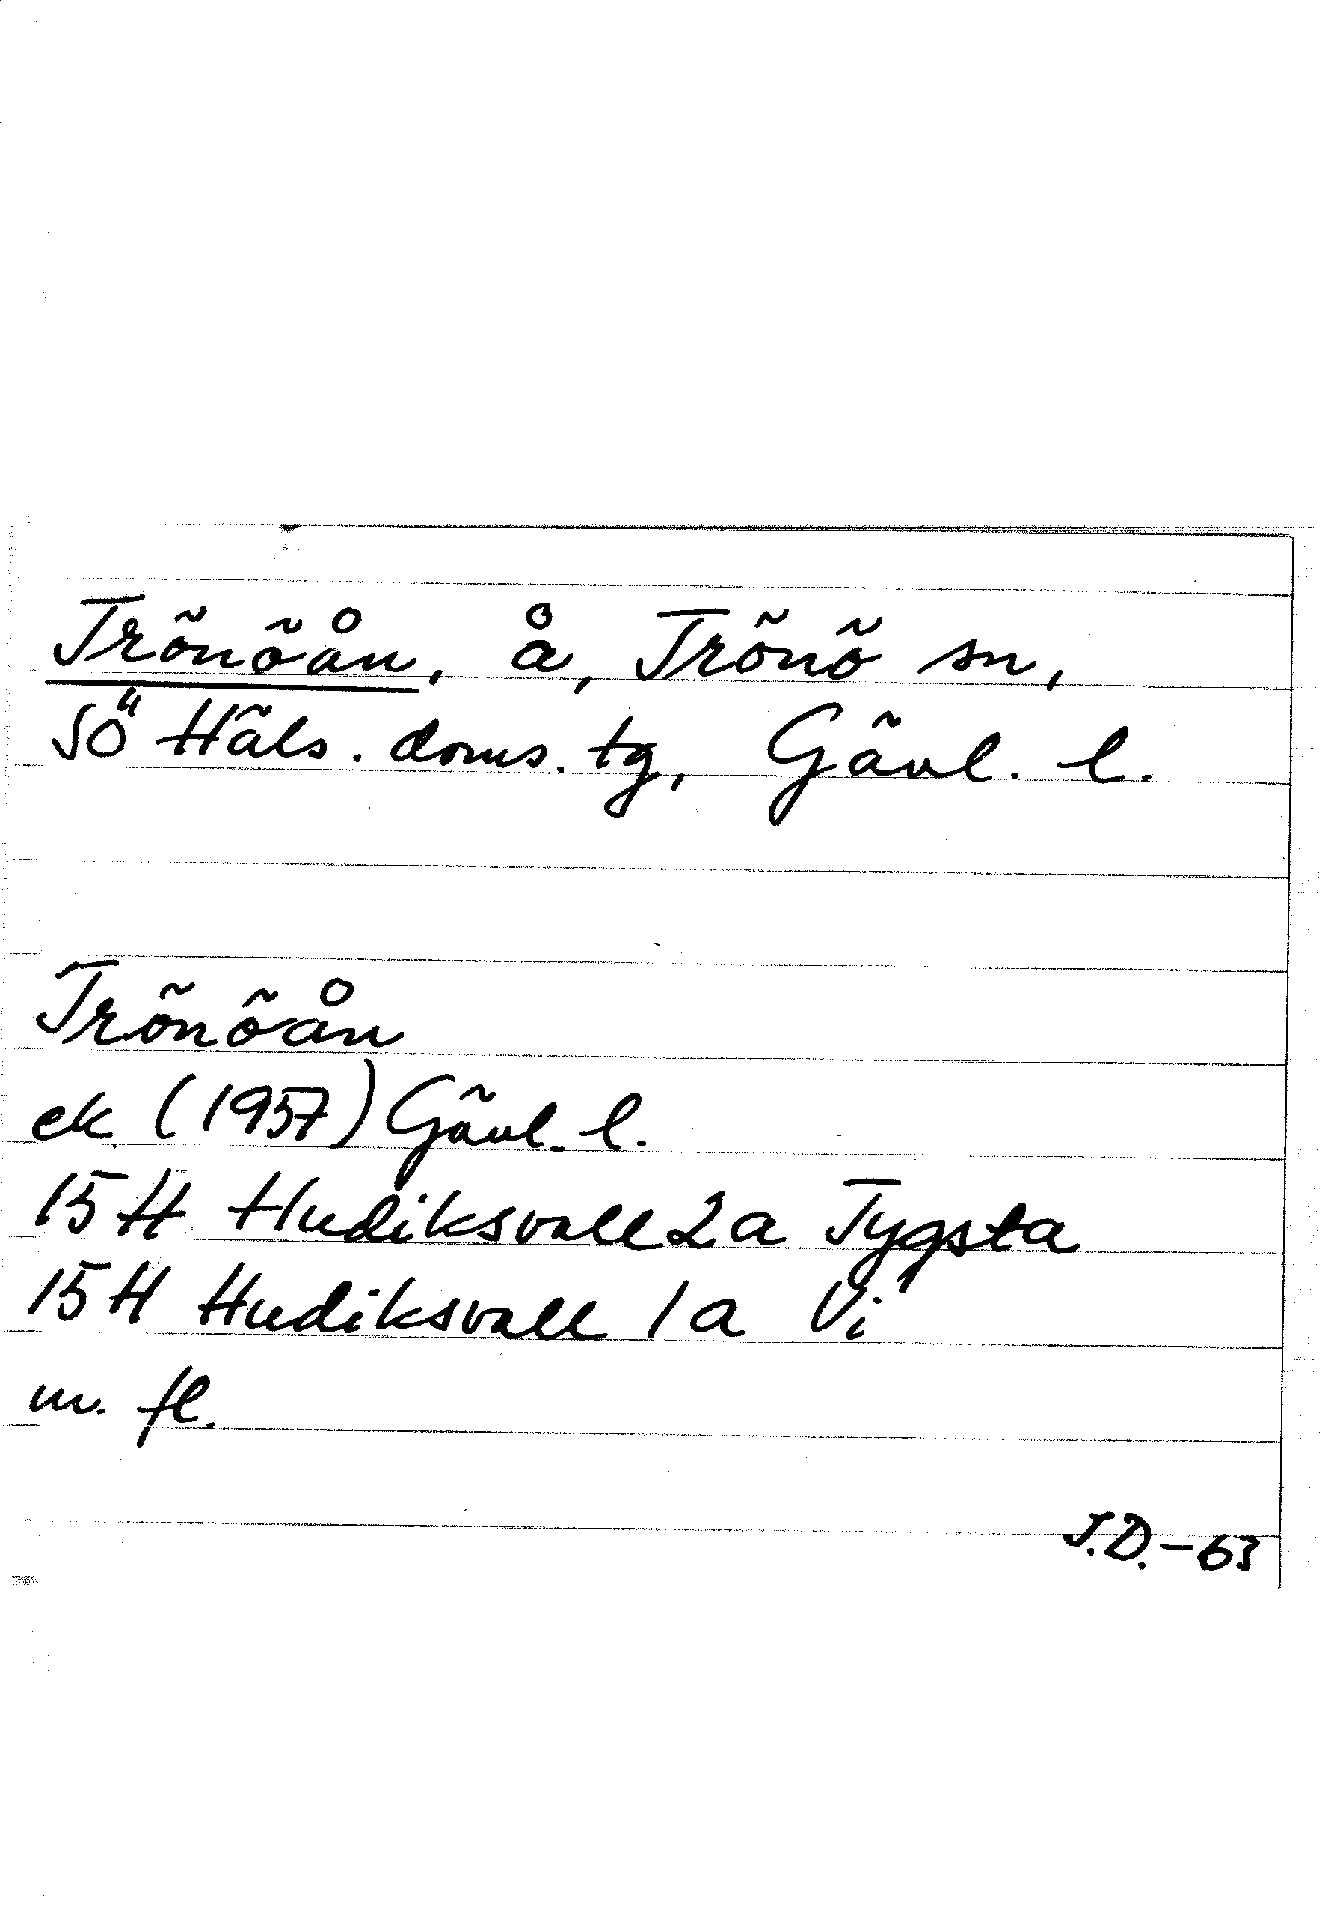 Trönöån, å, Trönö sn,
SÖ Häls. doms. tg, Gävl. l.
Trönöån
ek (1957) Gävl. l.
15H Hudiksvall 2a Tygsta
15H Hudiksvall 1a Vi
m. fl.
J.D.-63